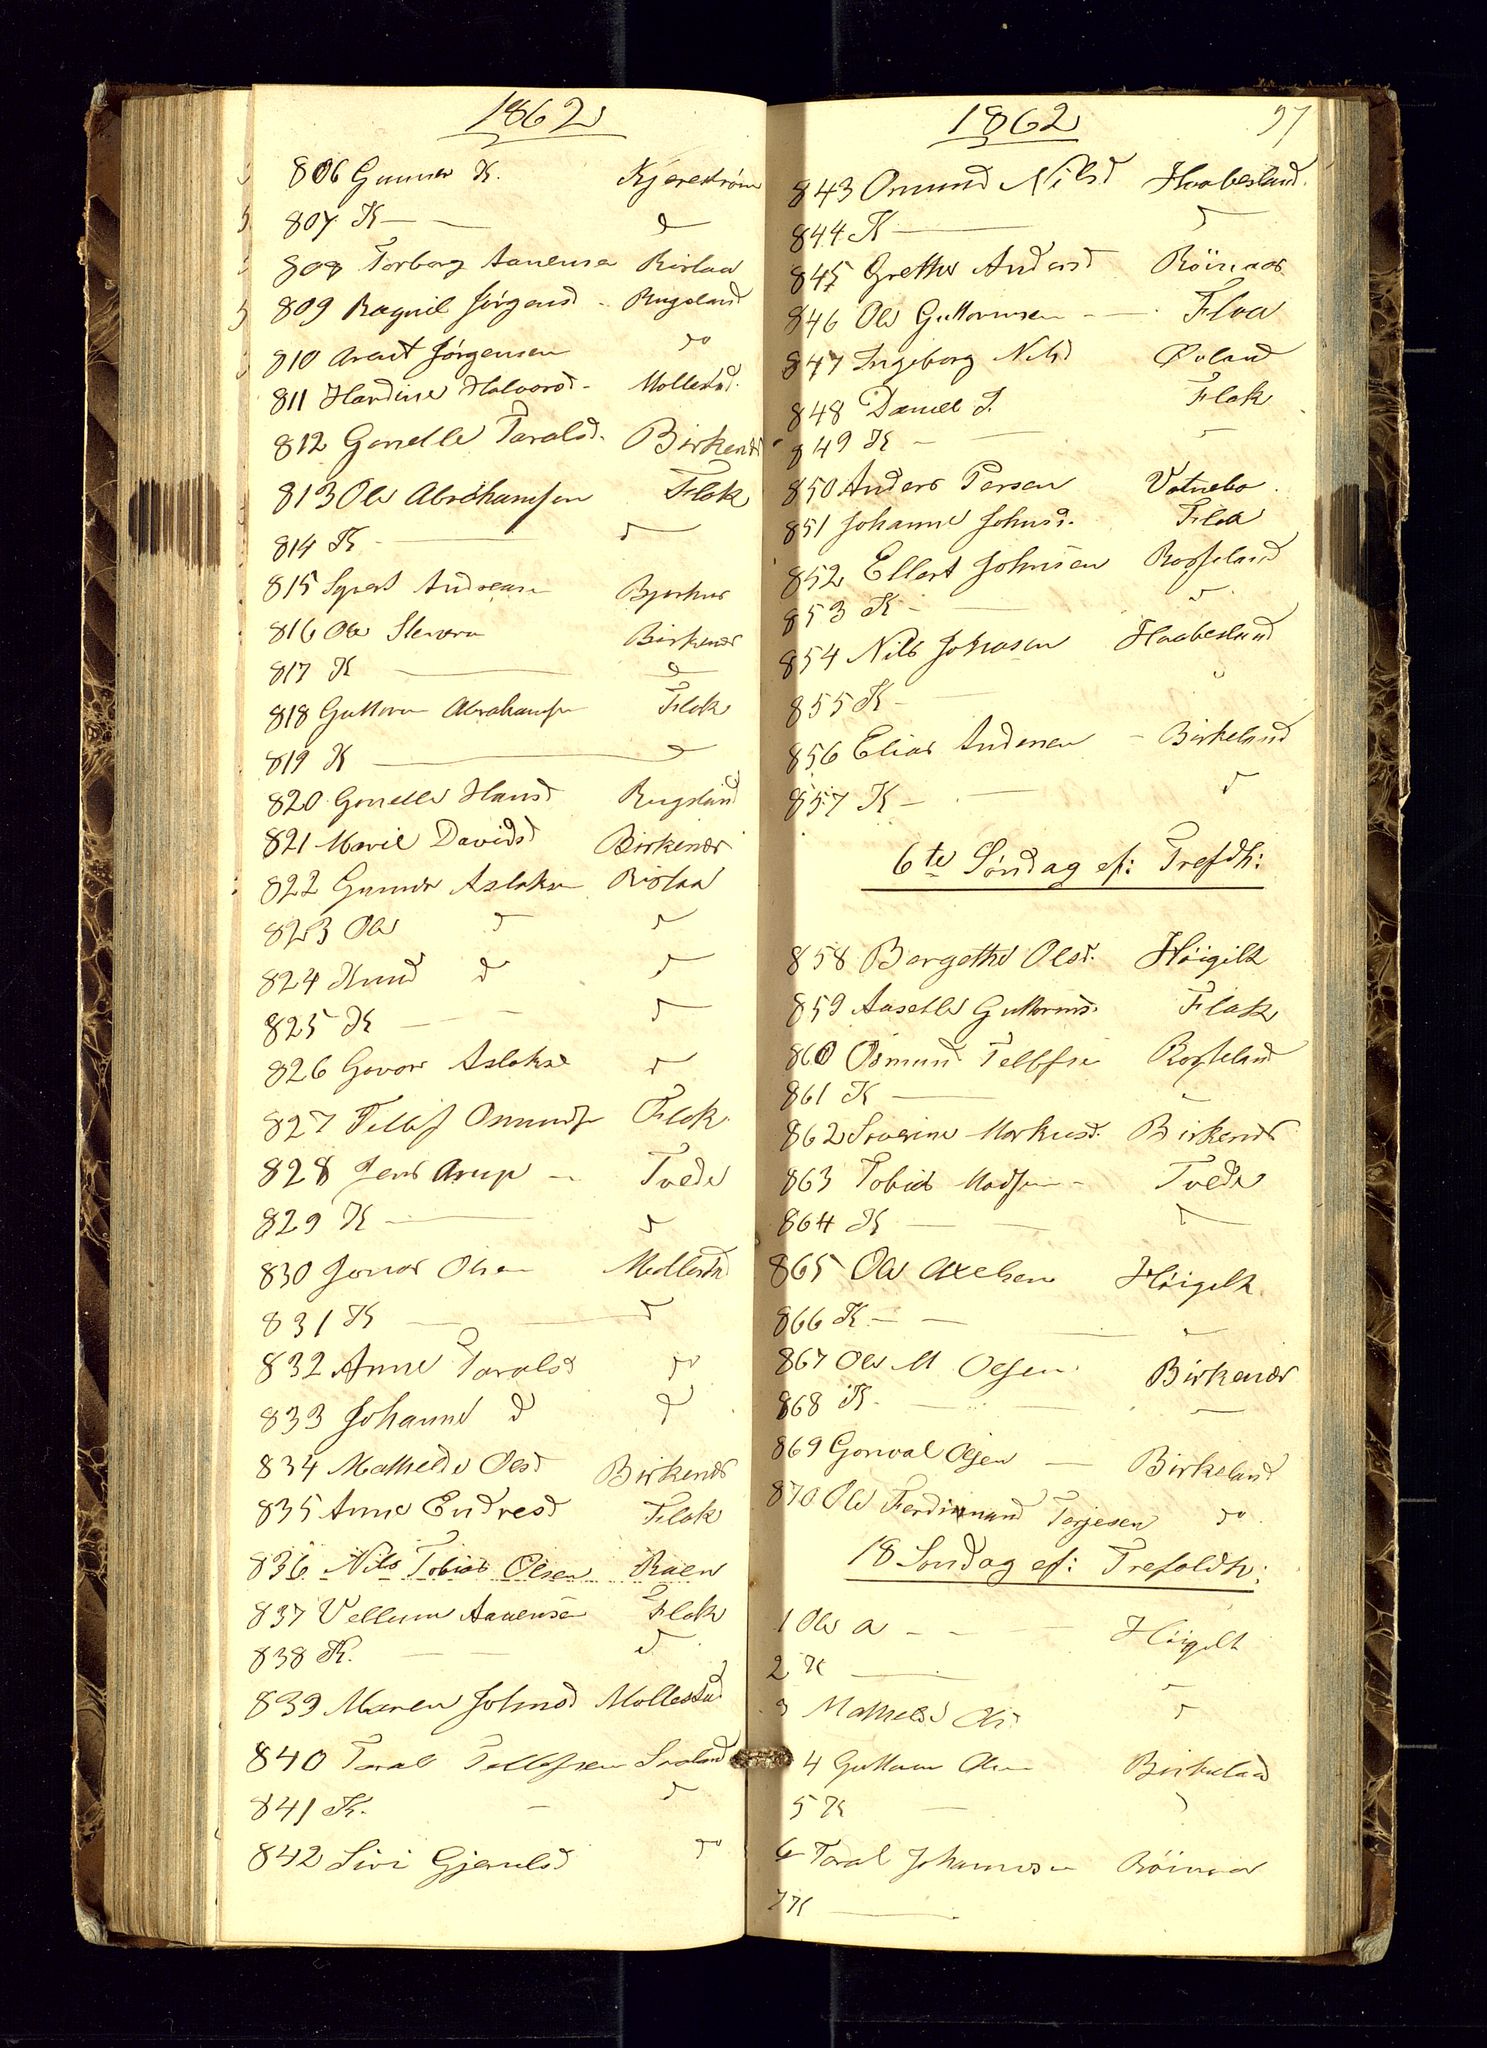 1862
806 Gunner K. Kjerestrøm
807 K — d
808 Torborg Aanensen Rislaa
809 Raguil Jörgensd - Rugsland
810 Arent Jørgensen do
811 Hardine Halvorsd - Mollestad
812 Gonelle Taralsd. Birkenes
813 Ole Abrahamsen Flak
814 K — d
815 Syvert Andreasen Bjorhus
816 Ole Birkenes
817 K — d
818 Guttorm Abrahamsen Flak
819 K — d
820 Gonelle Hansd Rugsland
821 Marie Davidsd Birkenes
822 Gunder Aslaksen Rislaa
823 Ole d d
824 Knud d d
825 K — d
826 Aslaksd d
827 Tellef Osmundsen Flak
828 Jens Arup — Tvede
829 K — d
830 Jonas Olsen Mollestad
831 K — d
832 Anne Taralsd do
833 Johanne d d
834 Mathilde Olsd Birkenes
835 Anne Endresd Flak
836 Nils Tobias Olsen Raen
837 Vellum Aanensen Flak
838 K. d
839 Maren Johnsd Mollestad
840 Taral Tellefsen
841 K. — d
842 Sivi do
1862 97
843 Omund Nilsd Haabesland.
844 K — d
845 Grethe Andersd Röinaas
846 Ole Guttormsen — Flaa
847 Ingeborg Nilsd Øvland
848 Daniel J. Flak
849 K — d
850 Anders Persen Vatnebo
851 Johanne Johnsd. Flaa
852 Ellert Johnsen Rosseland
853 K — d
854 Nils Johnsen Haabesland
855 K —
856 Elias Andersen — Birkeland
857 K — d
6te Søndag ef: Trefdh:
858 Bergethe Olsd. Höigilt
859 Aaselle Guttormsd. Flak
860 Osmund Tellefsen Rosseland
861 K —
862 Severine Markusd. Birkenes
863 Tobias Madsen — Tvede
864 K — d
865 Ole Axelsen Höigilt
866 K —
867 Ole M Olsen Birkenes
868 K. —
869 Gonval Olsen — Birkeland
870 Ole Ferdinand Terjesen do
18 Søndag ef: Trefoldh:
1 Ole A — Höigilt
2 K —
3 Mathilde Ols. d
4 Guttorm Olsen Birkeland
5 K —
6 Taral Johannesen Röinaas
7 K —